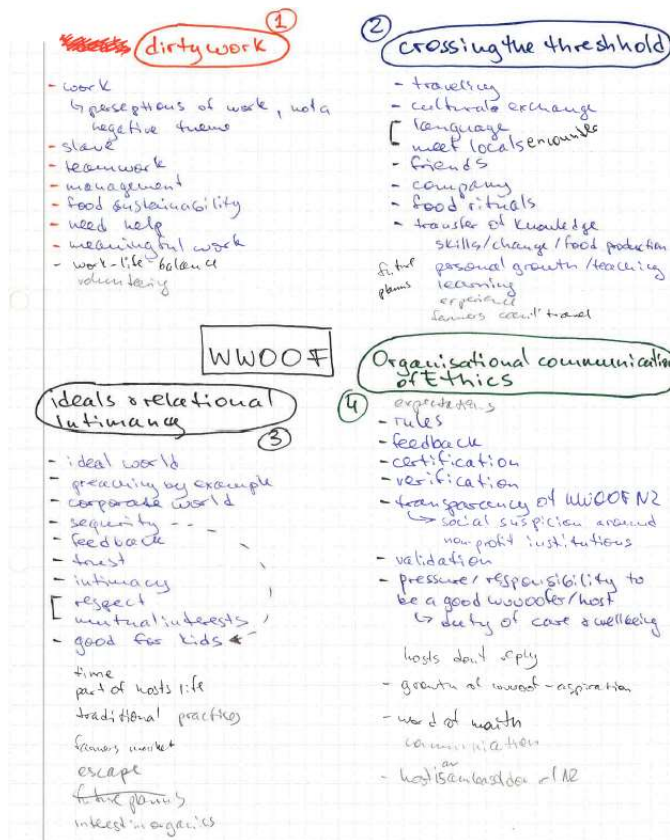 1
dirty work
- work
↳ perseptions of work, not a
negative theme
- slave
- teamwork
- management
- food sustainability
- need help
- meaningful work
- work-life balance
volunteering
2
crossing the threshhold
- traveling
- cultural exchange
language
meet locals encounter
- friends
- company
- food rituals
- transfer of knowledge
skills/change/food production
future
plans
personal growth/teaching
learning
experience
farmers can't travel
WWOOF
ideals & relational
intimancy
3
- ideal world
- preaching by example
- corporate world
- sequrity
- feedback
- trust
- intimacy
respect
mutual interests
- good for kids
time
part of hosts life
traditional practices
farmers market
escape
future planns
interest in organics
Organisational communication
of Ethics
4
expectations
- rules
- feedback
- certification
- verification
- transparency of WWOOF NZ
↳ social suspicion around
non profit institutions
- validation
- pressure/responsibility to
be a good wwoofer/host
↳ duty of care & wellbeing
hosts don't reply
- growth of wwoof - aspiration
- word of maith
communication
- host is an ambassador of NZ